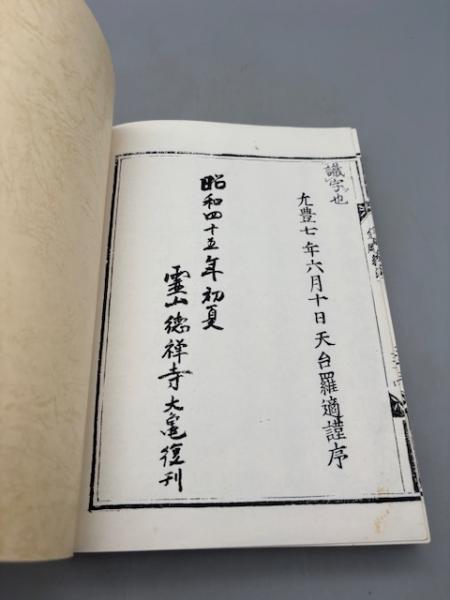 識字也
元豐七年六月十日天台羅適謹序
昭和四十五年初夏
霊山徳禅寺大亀復刊